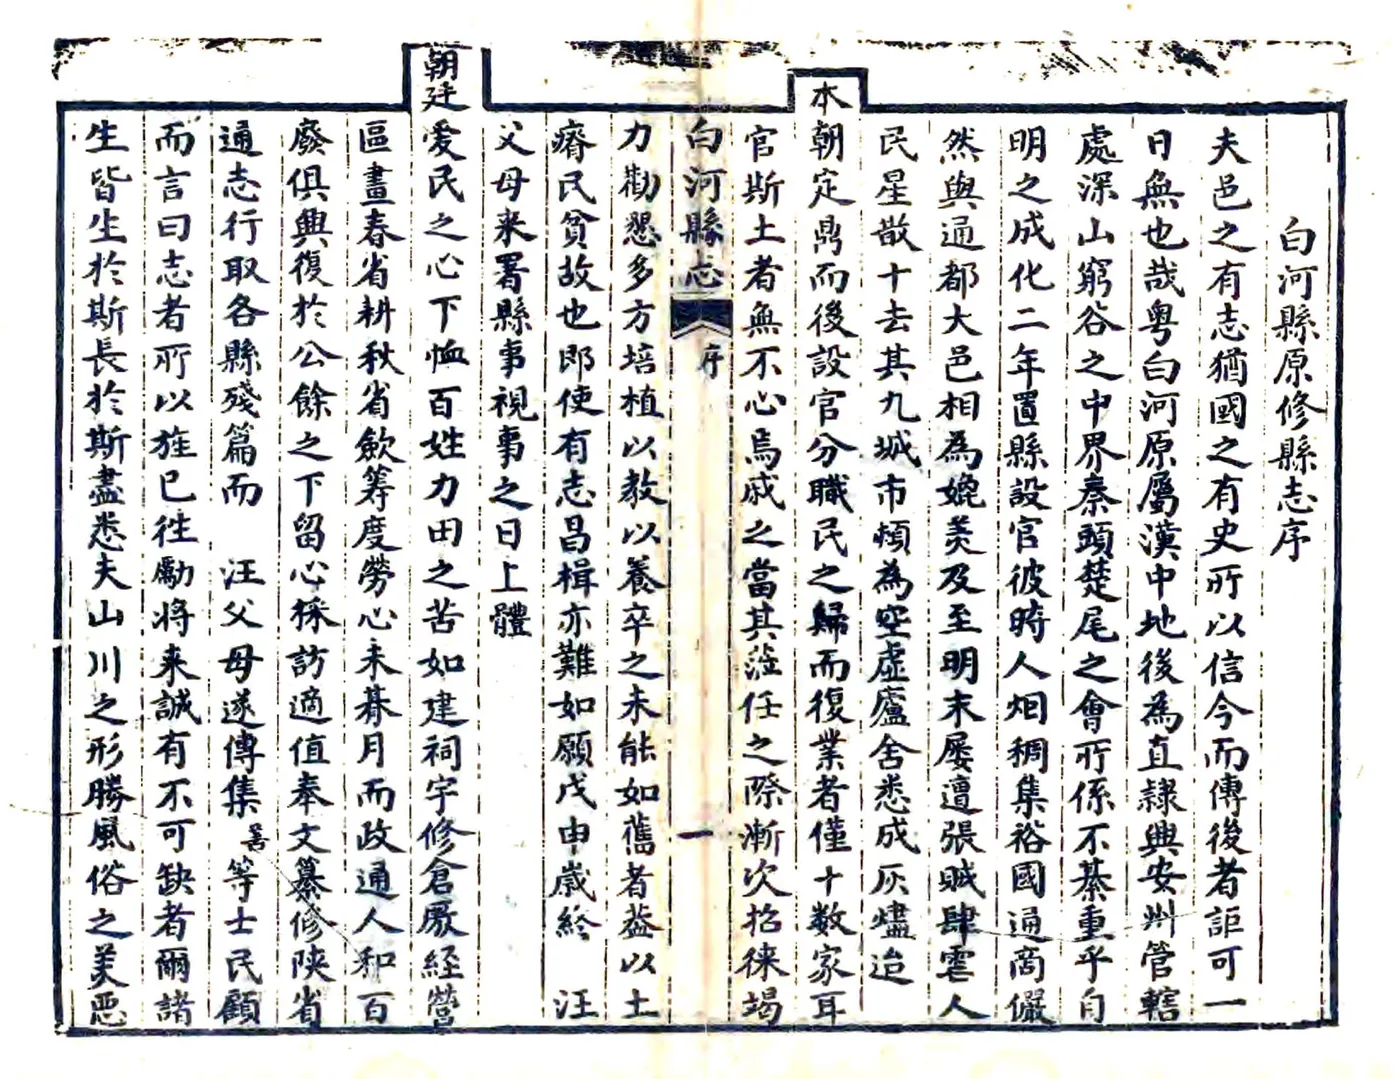 白河縣原修縣志序
夫邑之有志猶國之有史所以信今而傳後者詎可一
日無也哉粤白河原屬漢中地後為直隸興安州管轄
處深山窮谷之中界秦頭楚尾之會所係不綦重乎自
明之成化二年置縣設官彼時人烟稠集裕國通商儼
然與通都大邑相為媲美及至明末屡遭張賊肆虐人
民星散十去其九城市頓為空虛廬舍悉成灰燼迨
本朝定鼎而後設官分職民之歸而復業者僅十数家耳
官斯土者無不心焉戚之當其涖任之際漸次招徠竭
白河縣志
序
一
力勸懇多方培植以教以養卒之未能如舊者葢以土
瘠民貧故也即使有志昌楫亦難如願戊申歲終 汪
父母来署縣事視事之日上體
朝廷愛民之心下恤百姓力田之苦如建祠宇修倉廒經營
區畫春省耕秋省斂筹度勞心未朞月而政通人和百
廢俱興復於公餘之下留心採訪適值奉文纂修陝省
通志行取各縣殘篇而 汪父母遂傳集善等士民顧
而言曰志者所以旌已往勵将来誠有不可缺者爾諸
生皆生於斯長於斯盡悉夫山川之形勝風俗之美惡